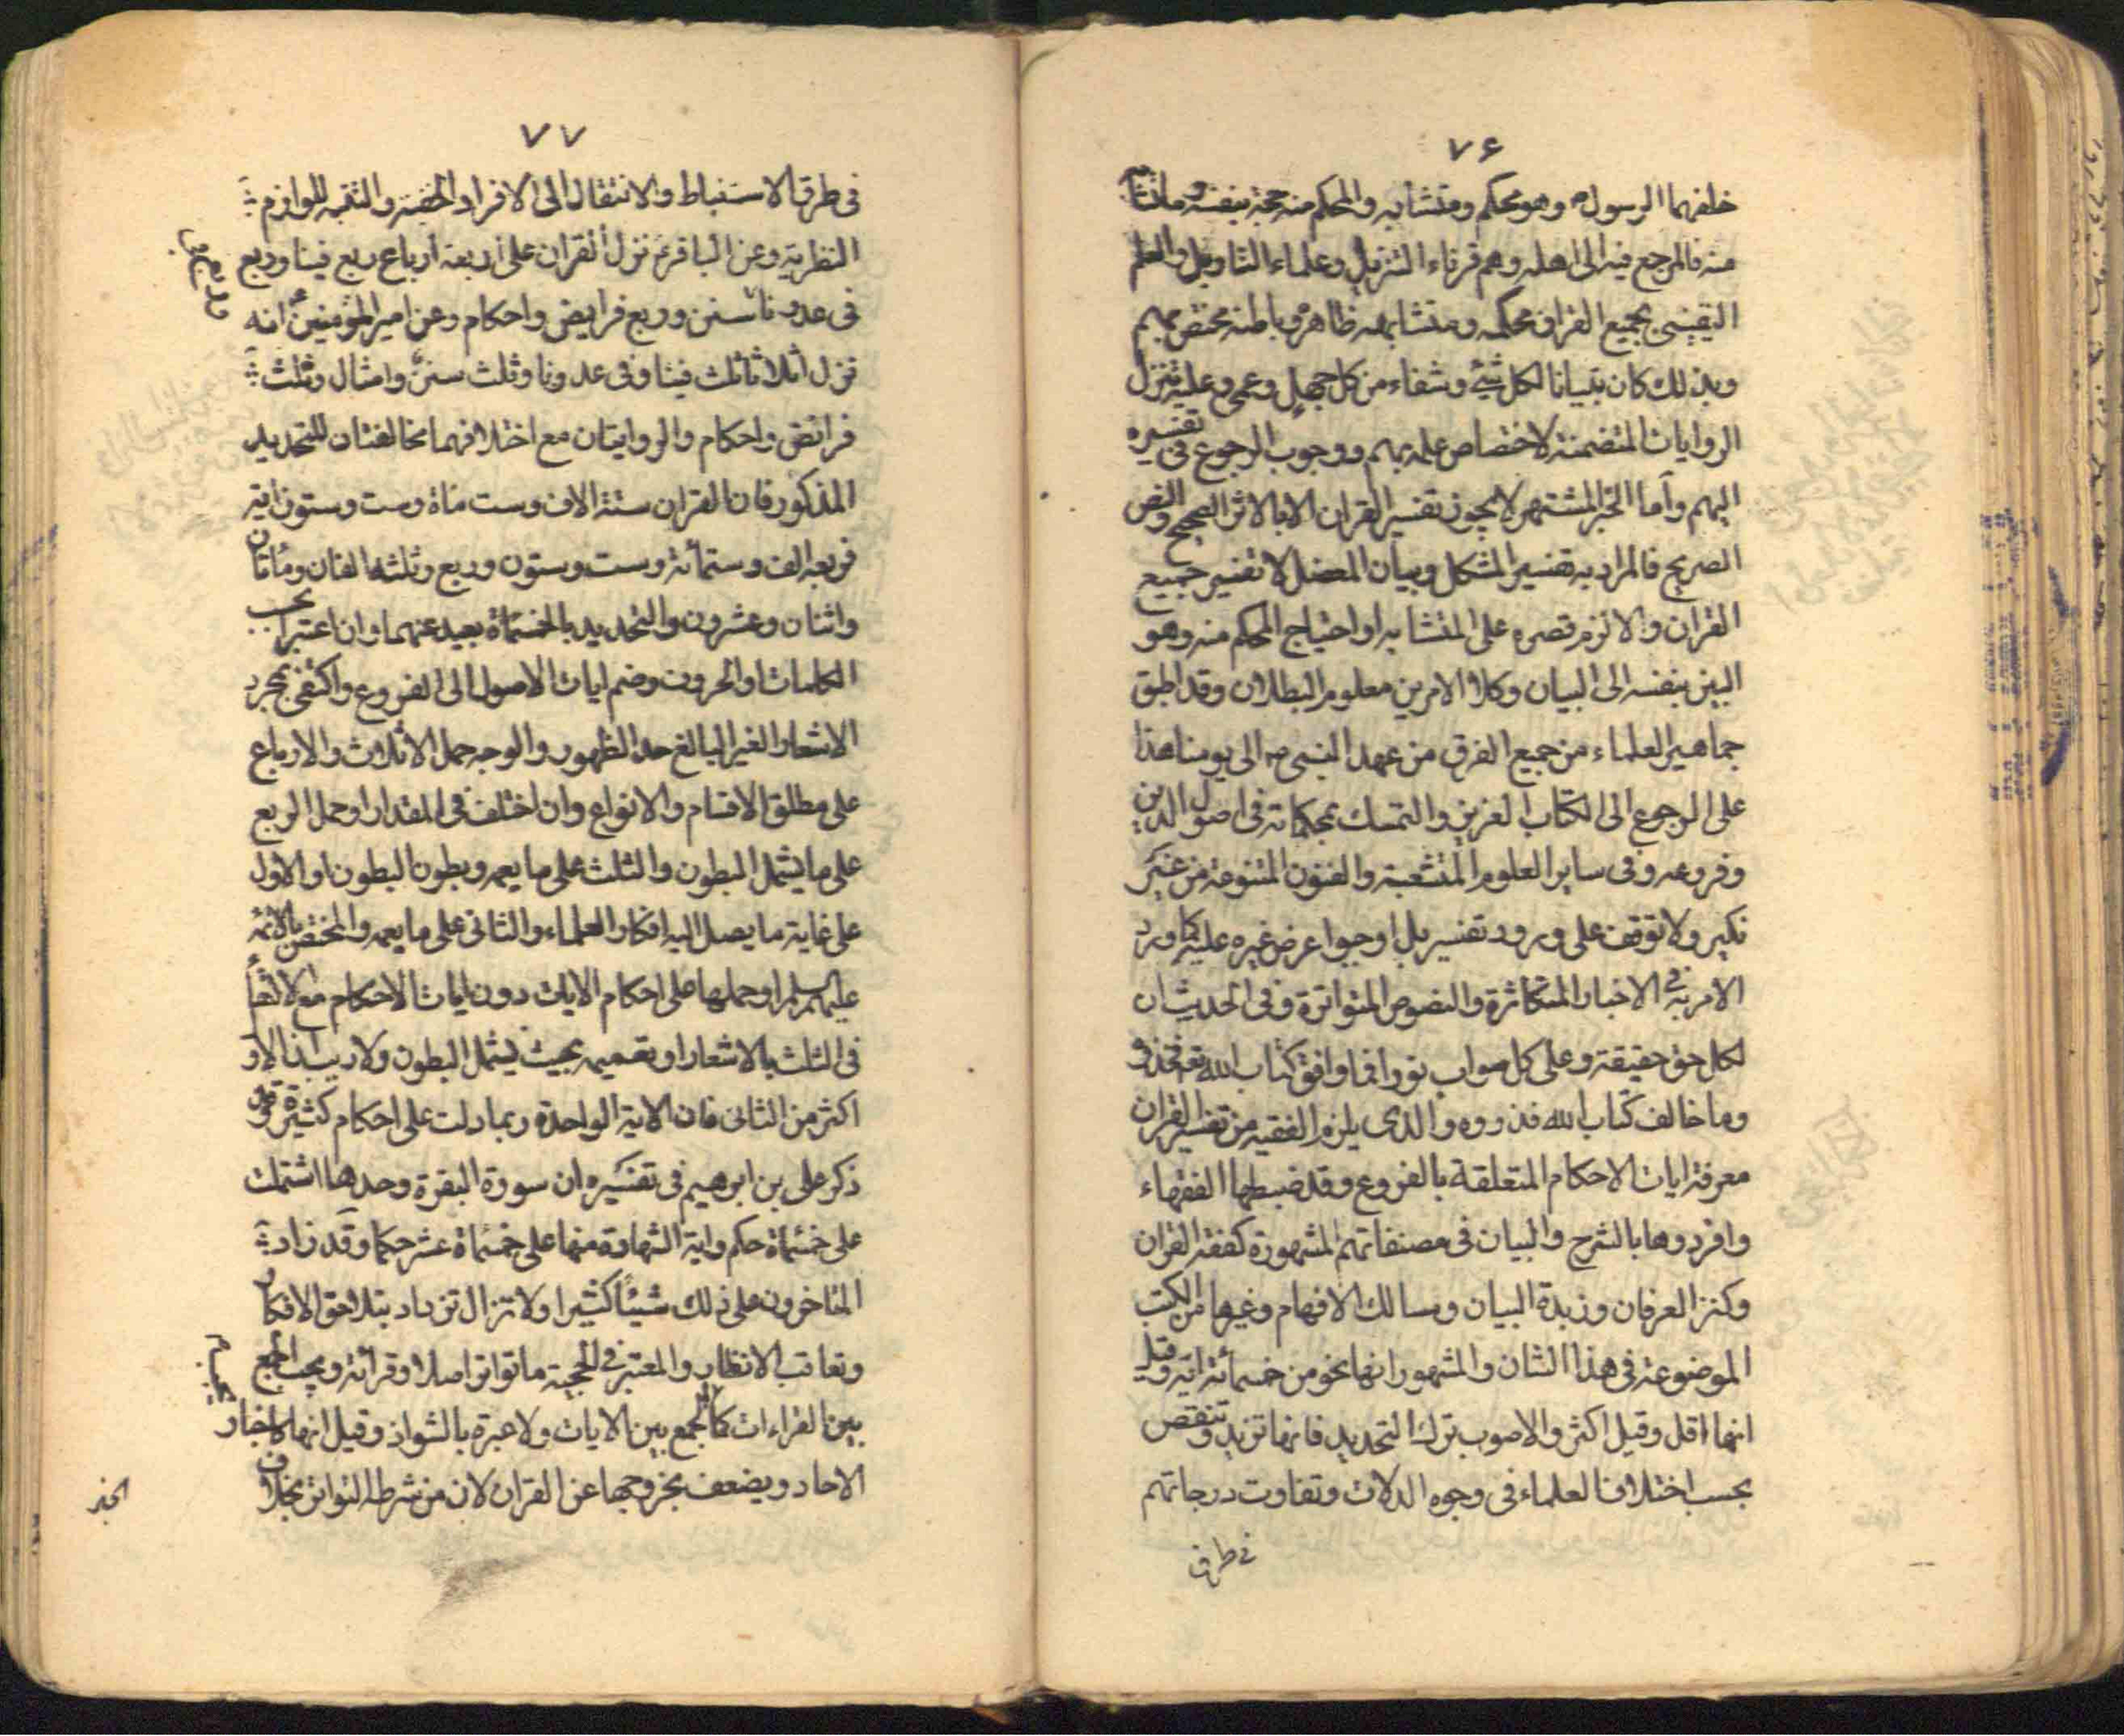 ٧۶
خلفهما الرسول ص وهو محكم ومتشابه والمحكم منه حجة بنفسه والمتشابه
منه فالمرجع فيه الى اهله وهم قرناء التنزيل وعلماء التاويل والعلم
اليقيني بجميع القران محكمه ومتشابهه ظاهره وباطنه مختص بهم
وبذلك كان تبيانا لكل شيء وشفاء من كل جهل وعمى وعليه تنزل
الروايات المتضمنة لاختصاص علمه بهم ووجوب الرجوع في تفسيره
اليهم واما الخبر المشتهر لا يجوز تفسير القران الا بالاثر الصحيح والنص
الصريح فالمراد به تفسير المشكل وبيان المعضل لا تفسير جميع
القران والا لزم قصره على المتشابه او احتياج المحكم منه وهو
البين بنفسه الى البيان وكلا الامرين معلوم البطلان وقد اطبق
جماهير العلماء من جميع الفرق من عهد النبي ص الى يومنا هذا
على الرجوع الى الكتاب العزيز والتمسك بمحكماته في اصول الدين
وفروعه وفي ساير العلوم المتشعبة والفنون المتنوعة من غير
نكير ولا توقف على ورود تفسير بل اوجبوا عرض غيره عليه كما ورد
الامر به في الاخبار المتكاثرة والنصوص المتواترة وفي الحديث ان
لكل حق حقيقة وعلى كل صواب نورا فما وافق كتاب الله تع فخذوه
وما خالف كتاب الله فذروه والذى يلزم الفقيه من تفسير القران
معرفة ايات الاحكام المتعلقة بالفروع وقد ضبطها الفقهاء
وافردوها بالشرح والبيان في مصنفاتهم المشهورة كفقه القران
وكنز العرفان وزبدة البيان ومسالك الافهام وغيرها من الكتب
الموضوعة في هذا الشان والمشهور انها نحو من خمسمائة اية وقيل
انها اقل وقيل اكثر والاصوب ترك التحديد فانها تزيد وتنقص
بحسب اختلاف العلماء في وجوه الدلالات وتفاوت درجاتهم
في طرق
٧٧
في طرق الاستنباط والانتقال الى الافراد الخفية والتنبه للوازم
النظرية وعن الباقر ع نزل القران على اربعة ارباع ربع فينا وربع
في عدونا وربع سنن وربع فرايض واحكام وعن امير المؤمنين ع انه
نزل اثلاثا ثلث فينا وفي عدونا وثلث سنن وامثال وثلث
فرائض واحكام والروايتان مع اختلافهما مخالفتان للتحديد
المذكور فان القران ستة الاف وست مأة وست وستون اية
فربعه الف وستمائة وست وستون وربع وثلثه الفان ومأتان
واثنان وعشرون والتحديد بالخمسمأة بعيد عنهما وان اعتبر بحسب
الكلمات او الحروف وضم ايات الاصول الى الفروع واكتفى بمجرد
الاشعار الغير البالغ حد الظهور والوجه حمل الاثلاث والارباع
على مطلق الاقسام والانواع وان اختلف في المقدار او حمل الربع
على ما يشمل البطون والثلث على ما يعمه وبطون البطون او الاول
على غاية ما يصل اليه افكار العلماء والثاني على ما يعمه والمختص بالائمة
عليهم السلم او حملها على احكام الايات دون ايات الاحكام مع الاكتفاء
في الثلث بالاشعار او تعميمه بحيث يشمل البطون ولا ريب ان الاول
اكثر من الثانى فان الاية الواحدة ربما دلت على احكام كثيرة وقد
ذكر على بن ابرهيم في تفسيره ان سورة البقرة وحدها اشتملت
على خمسمأة حكم واية الشهادة منها على خمسة عشر حكما وقد زاد
المتاخرون على ذلك شيئا كثيرا ولا تزال تزداد بتلاحق الافكار
وتعاقب الانظار والمعتبر في الحجية ما تواتر اصلا وقرائة ويجب الجمع
بين القراءات كالجمع بين الايات ولا عبرة بالشواذ وقيل انها كاخبار
الاحاد ويضعف بخروجها عن القران لان من شرطه التواتر بخلاف
الخبر